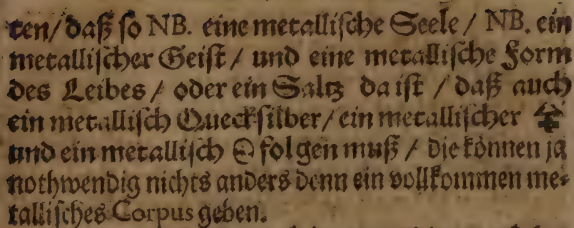 ten/ daß so NB. eine metallische Seele / NB. ein
metallischer Geist / und eine metallische Form
des Leibes / oder ein Saltz da ist / daß auch
ein metallisch Quecksilber/ ein metallischer 🜍
und ein metallisch 🜔 folgen muß / die können ja
nothwendig nichts anders denn ein vollkommen me-
tallisches Corpus geben.